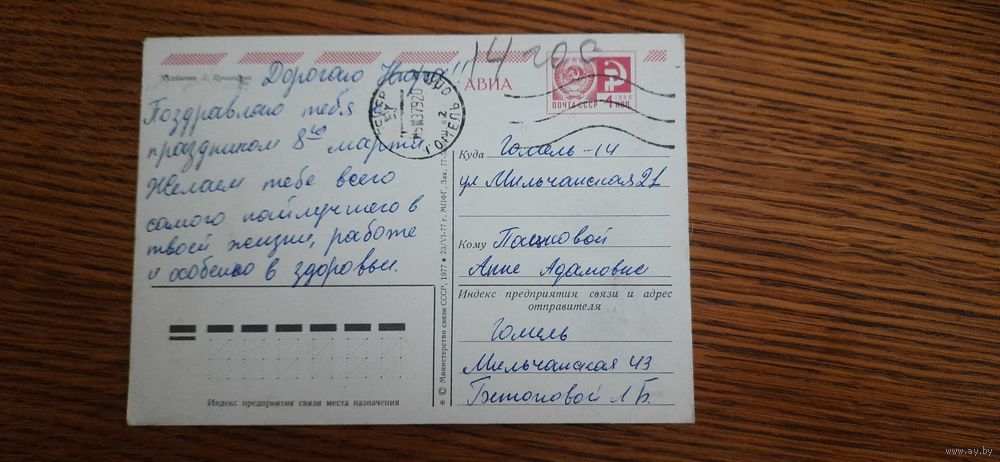 14 208
Художник Л.
Дорогая Нюра!!
Поздравляю тебя с
праздником 8го марта
Желаем тебе всего
самого наилучшего в
твоей жизни, работе
и особенно в здоровьи.
Индекс предприятия связи места назначения
* © Министерство связи СССР, 1977 • 23/VI-77 г., МПФГ. Зак. 77-
ГОМЕЛЬ
АВИА
ПОЧТА СССР 4 КОП.
1966
Куда Гомель-14
ул Мильчанская 21
Кому Пашковой
Анне Адамовне
Индекс предприятия связи и адрес
отправителя
Гомель
Мильчанская 43
Бетоновой Л Б.
www.ay.by